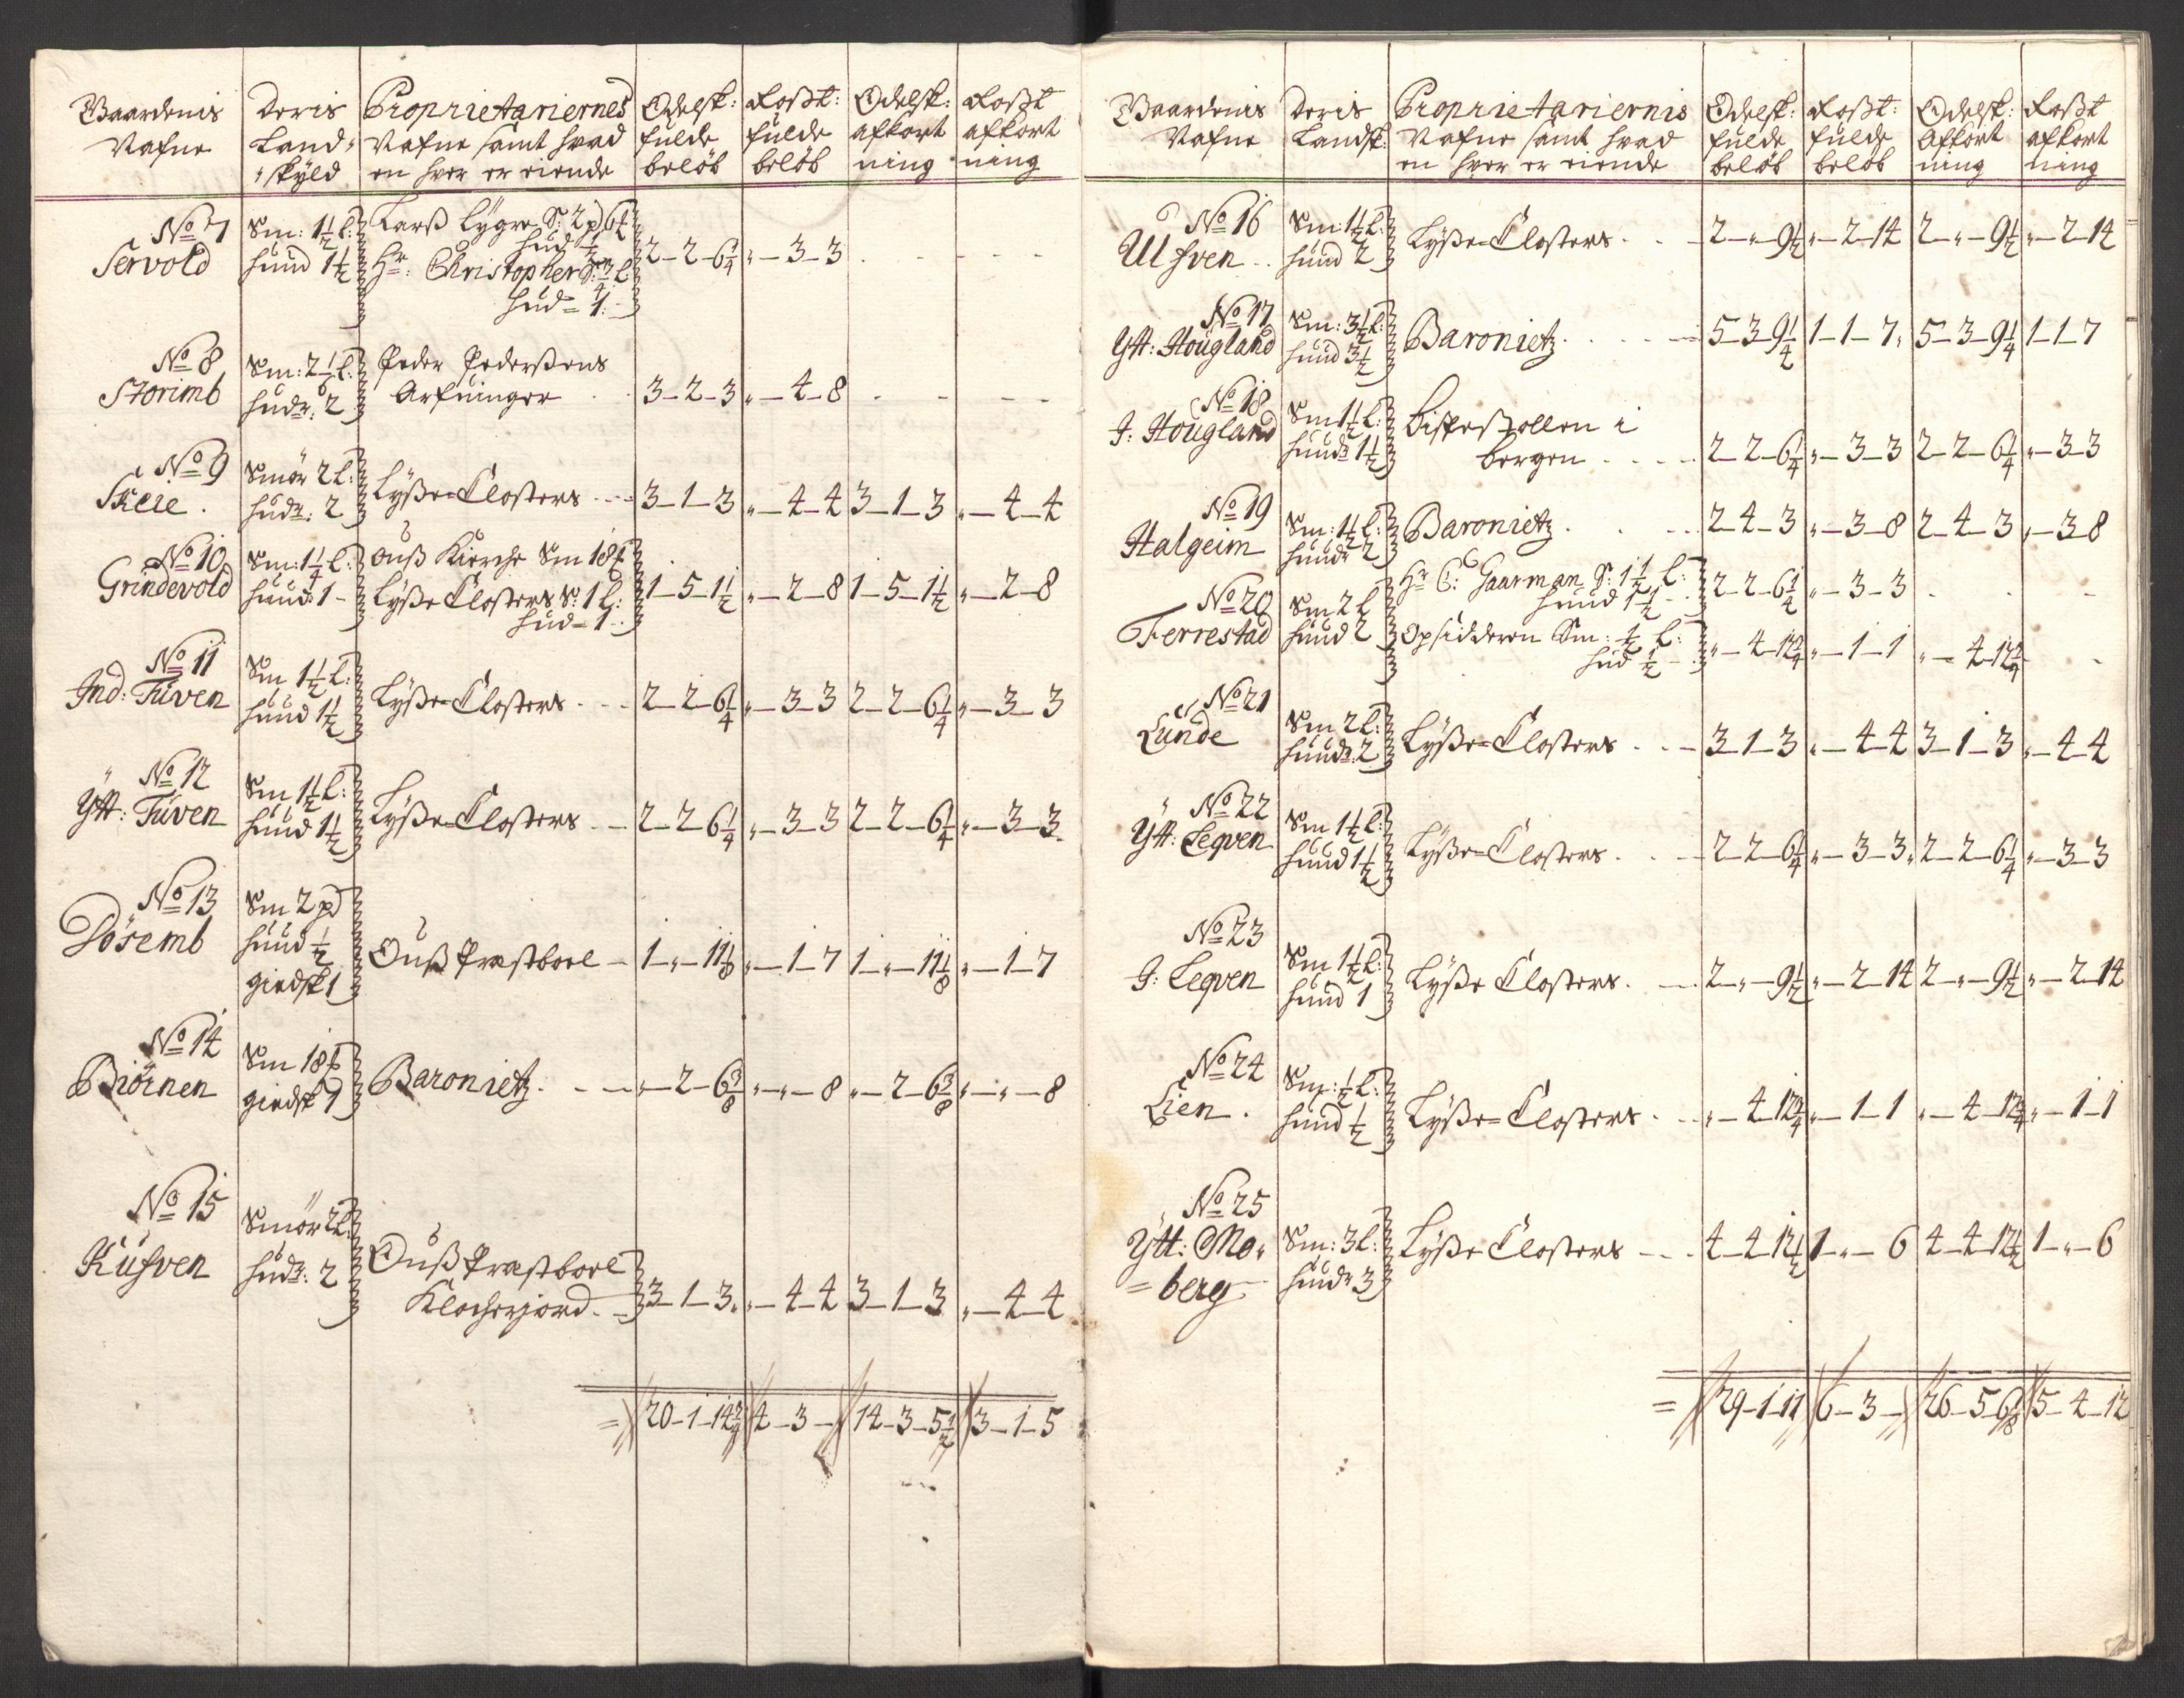 Gaardenis Nafne
Deris Land- skyld
Proprietariernes Nafne samt hvad en hver er eiende
Odelsk: fulde beløb
Roßt: fulde beløb
Odelsk: afkortning
Roßt afkortning
No 7
Servold
Sm: 1½ l:
hund 1½
Larß Lygre S: 2 pd 6 [mk]
hud ½
Hr: Christopher Sm ¾ l
hud = 1
2-2-6¼ „-3-3
No 8
Storimb
Sm: 2 l:
hudr: 2
Peder Pederßens
Arfuinger
3-2-3 „-4-8
No 9
Skeie
Smör 2 l:
hudr: 2
Lyße=Closters
3-1-3 „-4-4 3-1-3 „-4-4
No 10
Grindevold
Sm: 1¼ l:
hund 1
Ouß Kirche Sm 18
Lyße Closters S: 1 l:
hud = 1
1-5-1½ „-2-8 1-5-1½ „-2-8
No 11
Ind: Tuven
Sm 1½ l:
hund 1½
Lyße=Closters
2-2-6¼ „-3-3 2-2-6¼ „-3-3
No 12
Ytt: Tuven
Sm 1½ l:
hund 1½
Lyße=Closters
2-2-6¼ „-3-3 2-2-6¼ „-3-3
No 13
Dösemb
Sm 2 pd
hund ½
giedsk 1
Ouß Præstboel
1-„-11⅛ „-1-7 1-„-11⅛ „-1-7
No 14
Biörnen
Sm 18
giedsk 1
Baronietz
„-2-6⅜ „-„-8 „-2-6⅜ „-„-8
No 15
Kufven
Smör 2 l:
hudr: 2
Ouß Præstboel
Klocherjord
3-1-3 „-4-4 3-1-3 „-4-4
= 20-1-14¾ 4-3- 14-3-5½ 3-1-5
Gaardenis Nafne
Deris Landsk:
Proprietariernis Nafne samt hvad en hver er eiende
Odelsk: fulde beløb
Roßt: fulde beløb
Odelsk: Afkortning
Roßt afkortning
No 16
Ulfven
Sm: 1½ l:
hund 2
Lyße=Closters
2-„-9½ „-2-14 2-„-9½ „-2-14
No 17
Ytt: Hougland
Sm: 3½ l:
hund 3½
Baronietz
5-3-9¼ 1-1-7 5-3-9¼ 1-1-7
No 18
J: Hougland
Sm 1½ l:
hund 1½
Bispestollen i
Bergen
2-2-6¼ „-3-3 2-2-6¼ „-3-3
No 19
Halgeim
Sm: 1½ l:
hundr 2
Baronietz
2-4-3 „-3-8 2-4-3 „-3-8
No 20
Ferrestad
Sm 2 l
hund 2
Hr C: Gaarman S: 1½ l:
hund 1½
2-2-6¼ „-3-3
Opsidderen Sm: ½ l:
hud ½
„-4-12¾ „-1-1 „-4-12¾
No 21
Lunde
Sm 2 l:
hund 2
Lyße=Closters
3-1-3 „-4-4 3-1-3 „-4-4
No 22
Ytt: Leqven
Sm 1½ l:
hund 1½
Lyße=Closters
2-2-6¼ „-3-3 2-2-6¼ „-3-3
No 23
J: Leqven
Sm 1½ l:
hund 1
Lyße Closters
2-„-9½ „-2-14 2-„-9½ „-2-14
No 24
Lien
Sm: ½ l:
hund ½
Lyße=Closters
„-4-12¾ „-1-1 „-4-12¾ „-1-1
No 25
Ytt: Mo-
=berg
Sm: 3 l:
hundr 3
Lyße Closters
4-4-12½ 1-„-6 4-4-12½ 1-„-6
= 29-1-11 6-3- 26-5-6⅛ 5-4-12